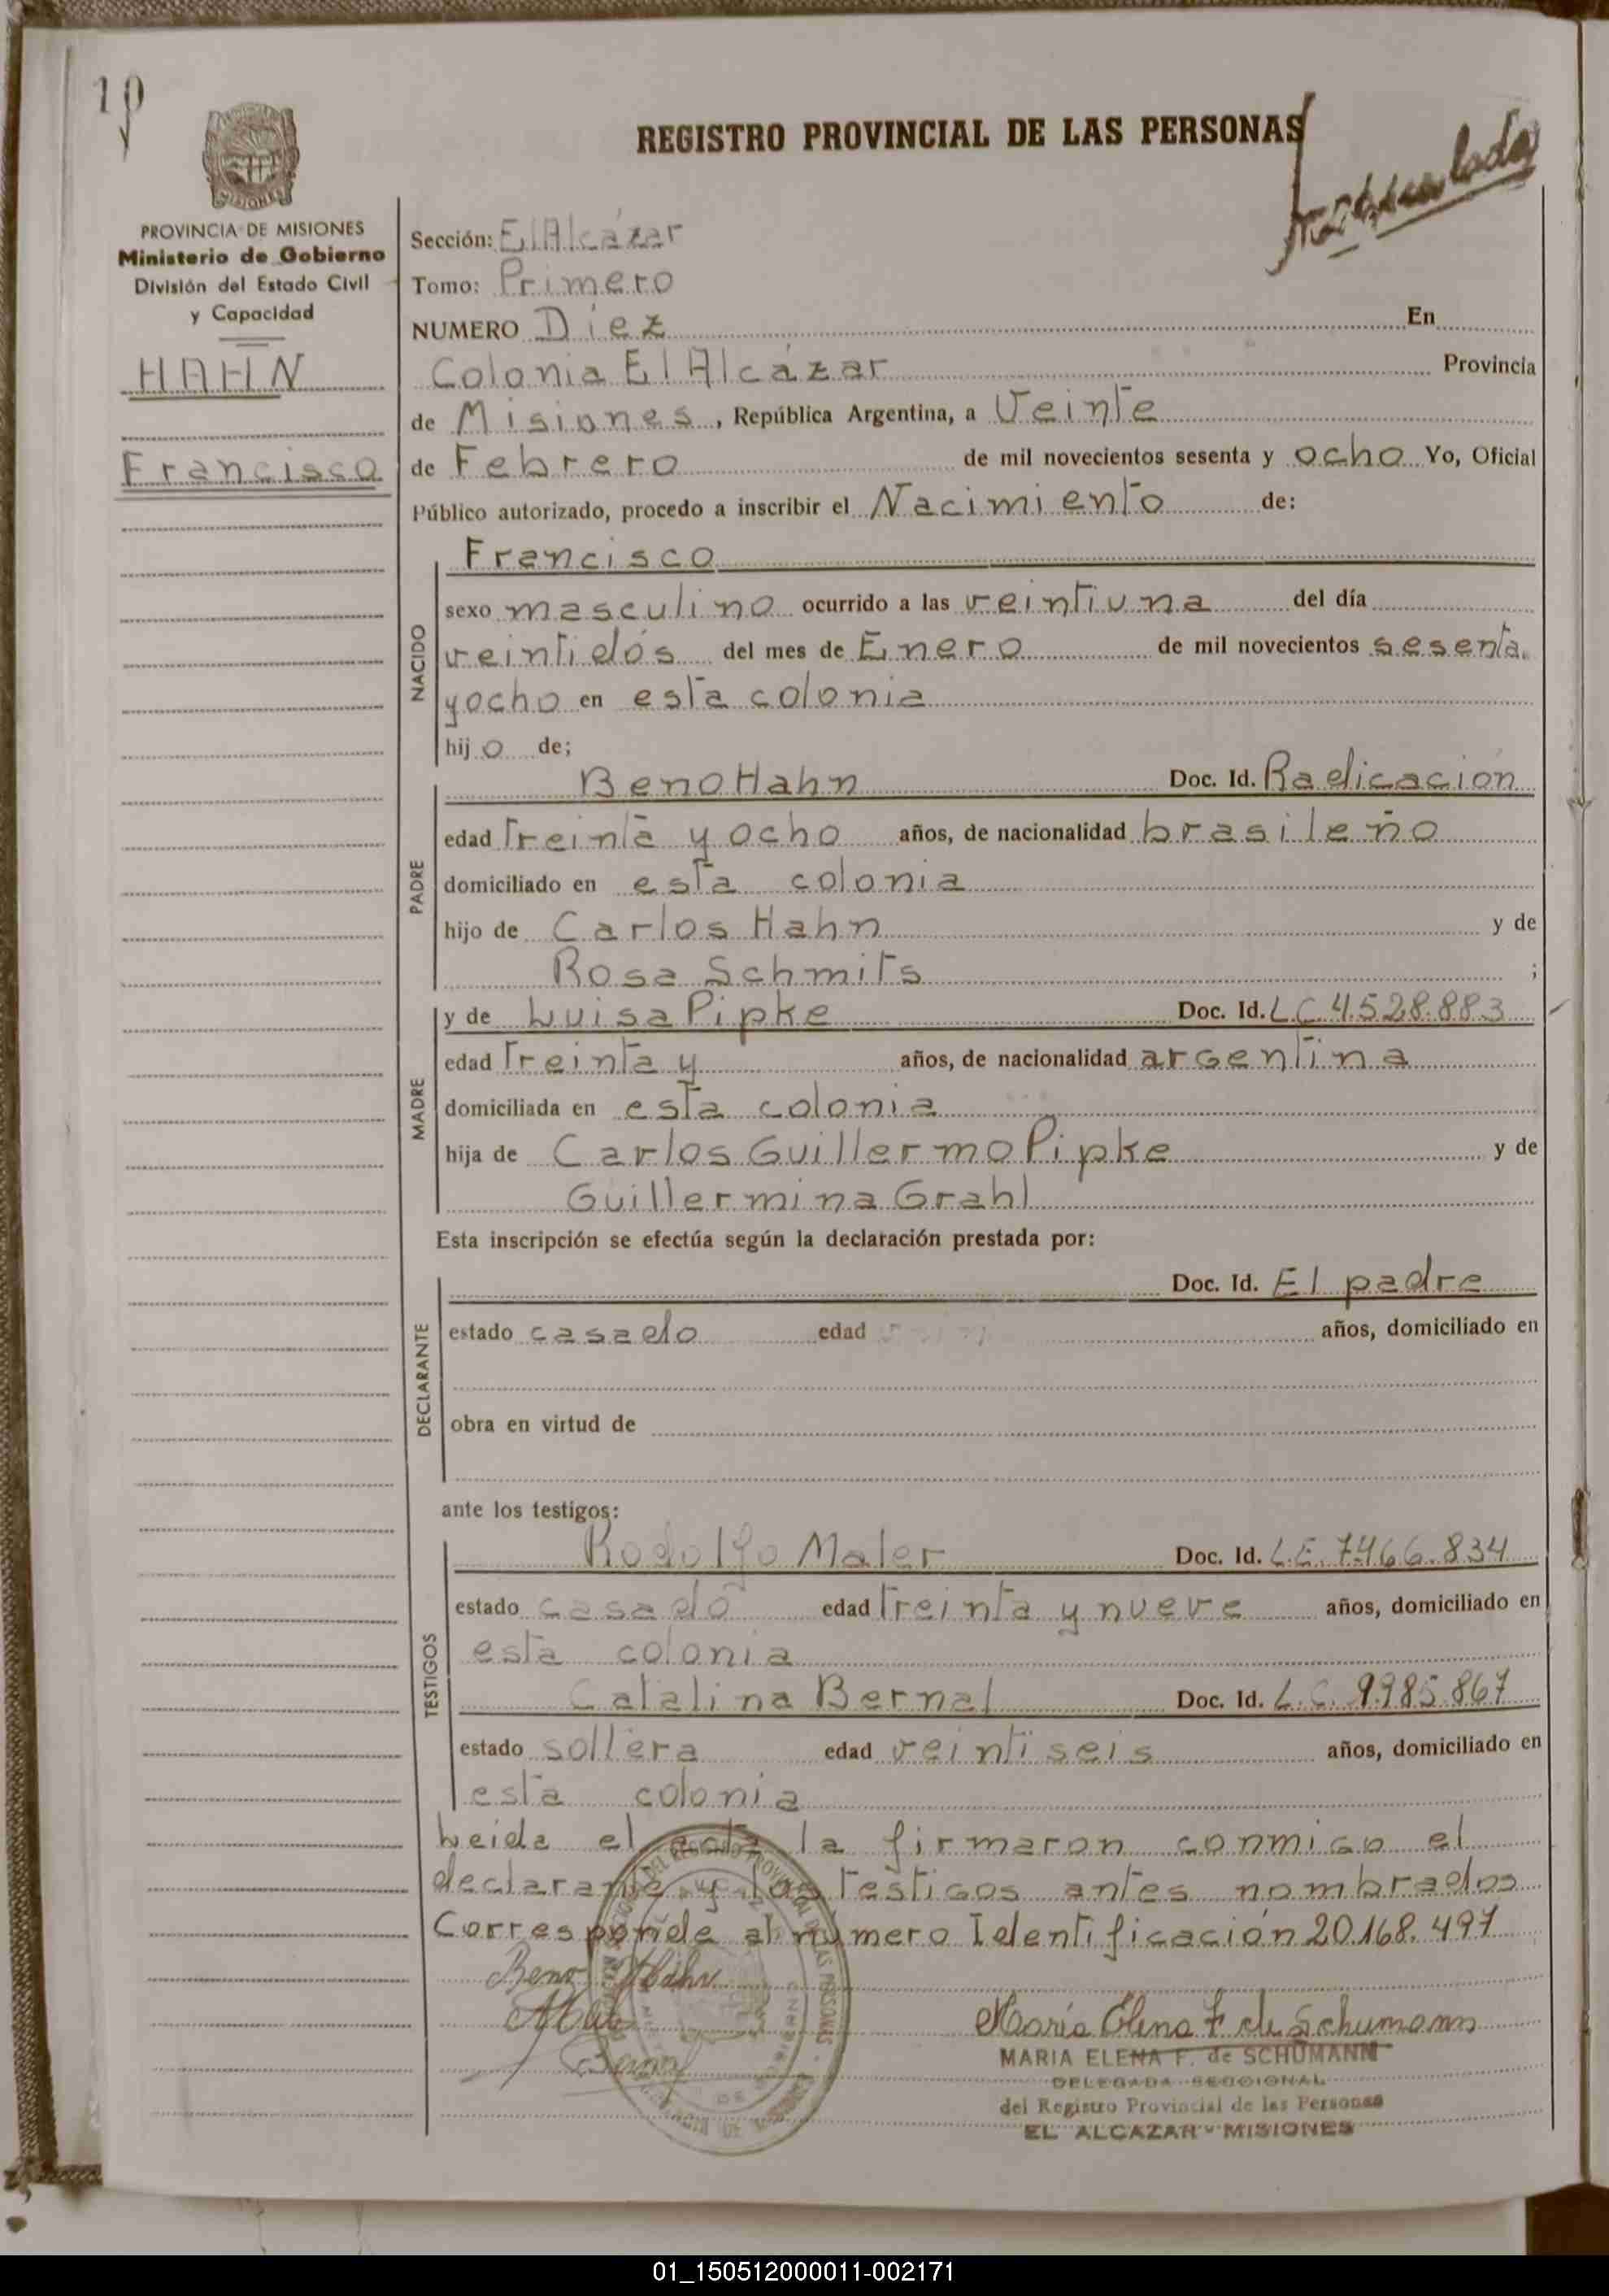 10
REGISTRO PROVINCIAL DE LAS PERSONAS
MISIONES
PROVINCIA DE MISIONES
Ministerio de Gobierno
División del Estado Civil
y Capacidad
HAHN
Francisco
Sección: El Alcázar
Tomo: Primero
NUMERO Diez En
Colonia El Alcázar Provincia
de Misiones, República Argentina, a Veinte
de Febrero de mil novecientos sesenta y ocho Yo, Oficial
Público autorizado, procedo a inscribir el Nacimiento de:
NACIDO
Francisco
sexo masculino ocurrido a las veintiuna del día
veintidós del mes de Enero de mil novecientos sesenta
y ocho en esta colonia
hijo de;
PADRE
Beno Hahn Doc. Id. Radicación
edad Treinta y ocho años, de nacionalidad brasileño
domiciliado en esta colonia
hijo de Carlos Hahn y de
Rosa Schmits ;
MADRE
y de Luisa Pipke Doc. Id. LC 4.528.883
edad Treinta y años, de nacionalidad argentina
domiciliada en esta colonia
hija de Carlos Guillermo Pipke y de
Guillermina Grahl
Esta inscripción se efectúa según la declaración prestada por:
DECLARANTE
Doc. Id. El padre
estado casado edad años, domiciliado en
obra en virtud de
ante los testigos:
TESTIGOS
Rodolfo Maler Doc. Id. L.E. 7.466.834
estado casado edad treinta y nueve años, domiciliado en
esta colonia
Catalina Bernal Doc. Id. L.C. 9.985.867
estado soltera edad veintiseis años, domiciliado en
esta colonia
Leida el acta la firmaron conmigo el
declarante y los testigos antes nombrados
Corresponde al número Identificación 20.168.497
Beno Hahn
María Elena F. de Schumann
Bernal
MARIA ELENA F. de SCHUMANN
DELEGADA SECCIONAL
del Registro Provincial de las Personas
EL ALCAZAR - MISIONES
01_150512000011-002171